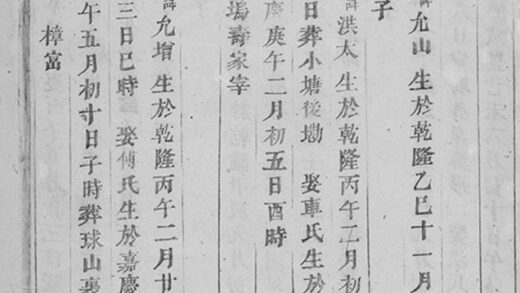 諱允山 生於乾隆乙巳十一月
子
諱洪太 生於乾隆丙午二月初
日葬小塘後墈 娶車氏生於
慶庚午二月初五日酉時
塢壽家宰
諱允增 生於乾隆丙午二月廿
三日巳時 娶傅氏生於嘉慶
午五月初十日子時葬球山裏
樟富